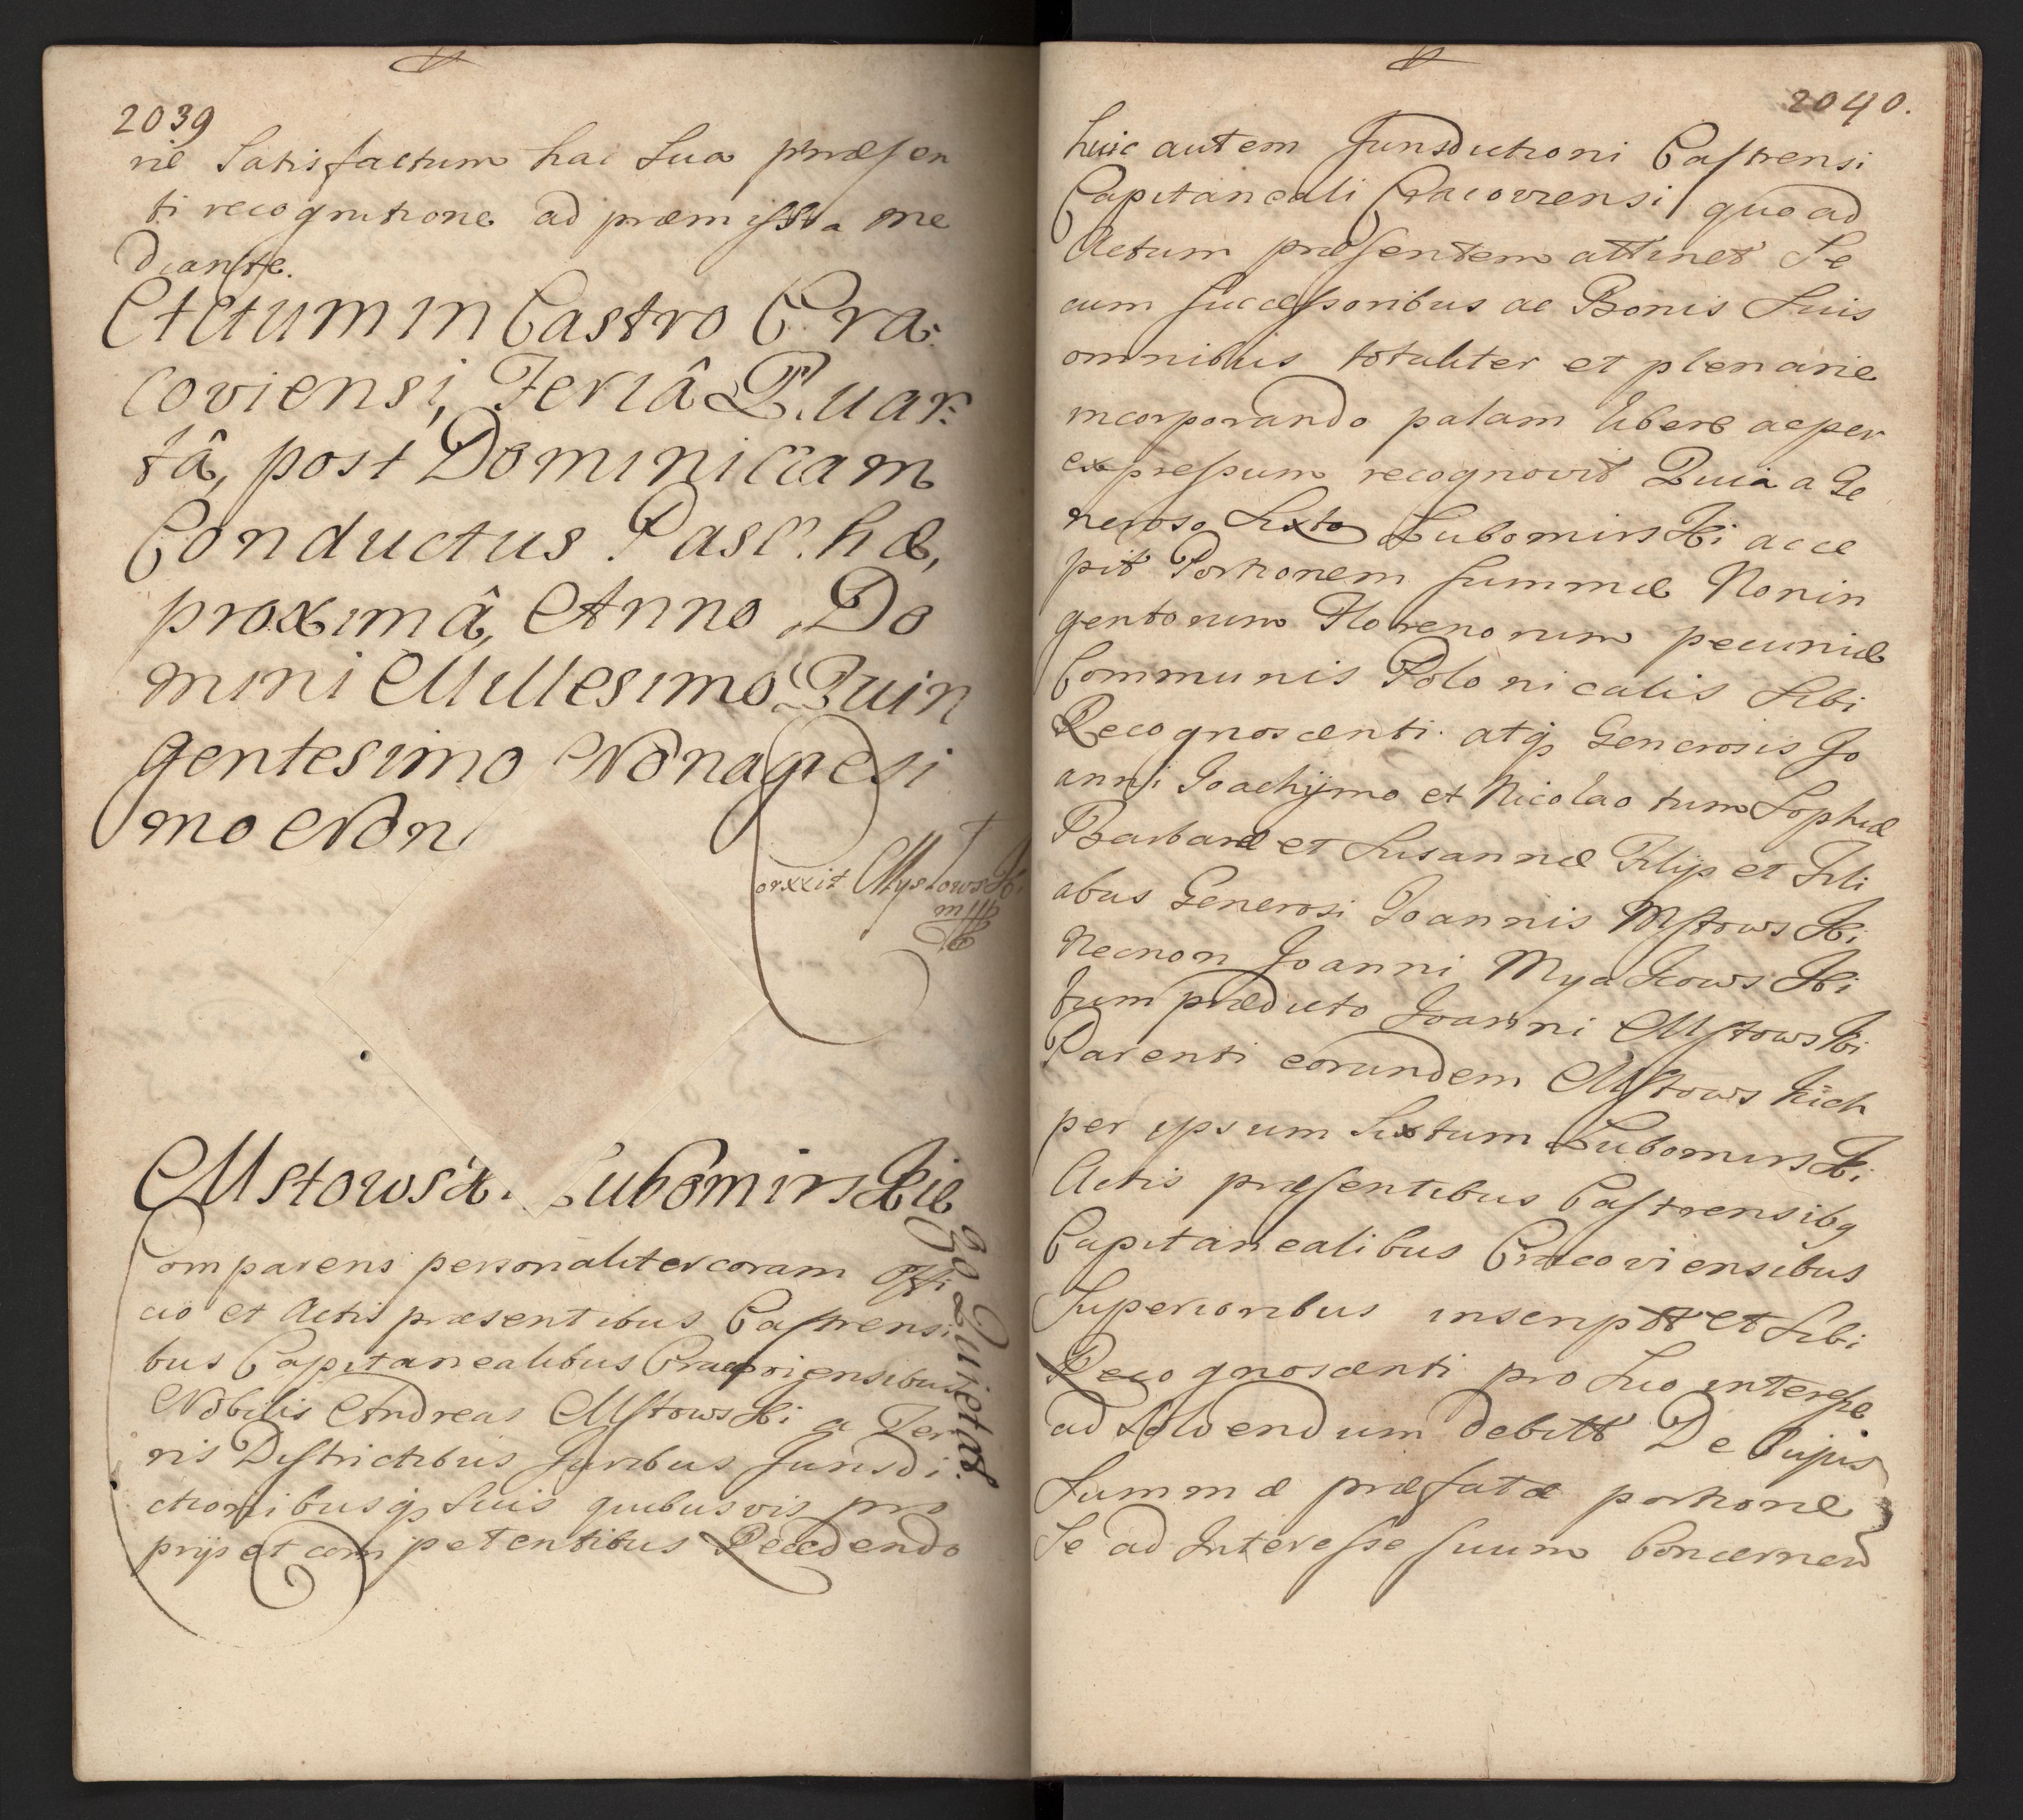 2039
rie Satisfactum hac Sua præsen
ti recognitione ad præmissa me
diante.
Actum in Castro Cra:
coviensi, Feriâ Quar:
tâ, post Dominicam
Conductus Paschæ,
proximâ, Anno Do
mini Millesimo Quin
gentesimo Nonagesi
mo Non
orrexit Mystowski
mp
Mstowsk. Lubomirskie
go Quietat.
Comparens personaliter coram Offi
cio et Actis præsentibus Castrensi
bus Capitanealibus Cracoviensibus
Nobilis Andreas Mstowski a Ter
ris Districtibus Juribus Jurisdi
ctionibusq suis quibusvis pro
prijs et competentibus Recedendo
2040.
huic autem Jurisdictioni Castrensi
Capitaneali Cracoviensi quo ad
Actum præsentem attinet Se
cum successoribus ac Bonis Suis
omnibus totaliter et plenarie
incorporando palam libere ac per
expressum recognovit Quia a Ge
neroso Sixto Lubomirski acce
pit Portionem summæ Nonin
gentorum Florenorum pecuniæ
Communis Polonicalis Sibi
Recognoscenti atq Generosis Jo
anni Joachymo et Nicolao tum Sophiæ
Barbaræ et Susannæ Filijs et Fili
abus Generosi Joannis Mstowski
Necnon Joanni Myakowski
tum prædicto Joanni Mstowski
Parenti eorundem Mstowskich
per ipsum Sixtum Lubomirski
Actis præsentibus Castrensibq
Capitanealibus Cracoviensibus
Superioribus inscript et Sibi
Recognoscenti pro Suo interesse
ad Solvendum debitt De Cujus
Summæ præfatæ portione
Se ad Interesse suum Concernen